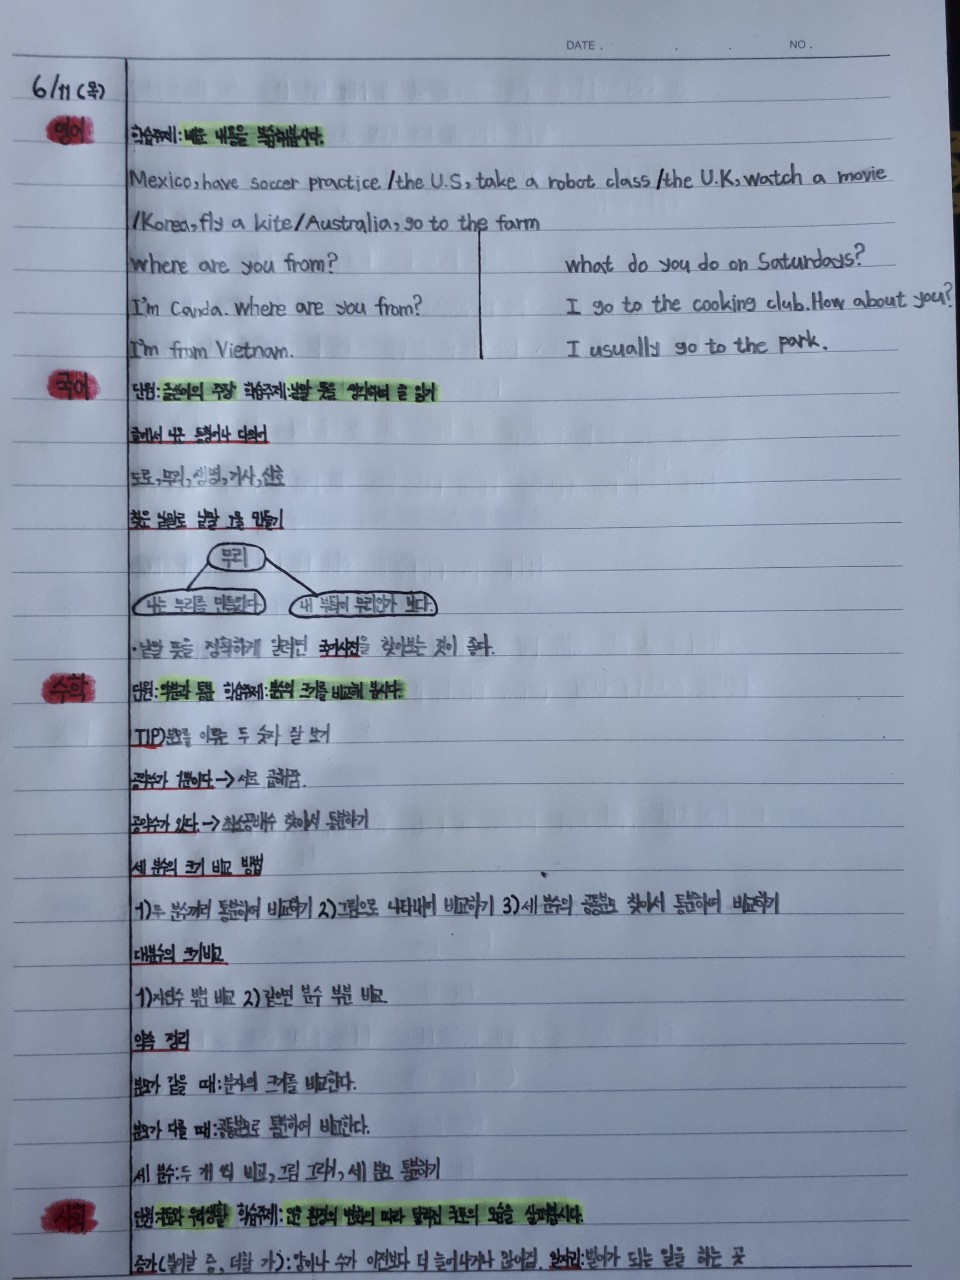 DATE . . . NO .
6/11 (목)
영어 학습주제: 배운 내용을 복습해봅시다.
Mexico, have soccer practice /the U.S, take a robot class /the U.K, watch a movie
/Korea, fly a kite/Australia, go to the farm
Where are you from?
I'm Canda. Where are you from?
I'm from Vietnam.
What do you do on Saturdays?
I go to the cooking club. How about you?
I usually go to the park.
국어 단원: 글쓴이의 주장 학습주제: 낱말 뜻을 생각하며 글 읽기
글에서 나온 동형어나 다의어
도로, 무리, 생명, 기사, 신호
찾은 낱말로 낱말 그물 만들기
무리
나는 무리를 만들었다.
내 부탁이 무리인가 보다.
·낱말 뜻을 정확하게 알려면 국어사전을 찾아보는 것이 좋다.
수학 단원: 약분과 통분 학습주제: 분수의 크기를 비교해 봅시다.
TIP) 분모를 이루는 두 숫자 잘 보기
공약수가 1뿐이다. → 서로 곱하면.
공약수가 있다. → 최소공배수 찾아서 통분하기
세 분수의 크기 비교 방법
1) 두 분수끼리 통분하여 비교하기 2) 그림으로 나타내어 비교하기 3) 세 분수의 공통분모 찾아서 통분하여 비교하기
대분수의 크기비교
1) 자연수 부분 비교 2) 같으면 분수 부분 비교
약속 정리
분모가 같을 때: 분자의 크기를 비교한다.
분모가 다를 때: 공통분모로 통분하여 비교한다.
세 분수: 두 개 씩 비교, 그림 그리기, 세 분모 통분하기
사회 단원: 국토와 우리생활 학습주제: 인문 환경의 변화에 따라 달라진 국토의 모습을 살펴봅시다.
증가(불어날 증, 더할 가): 양이나 수가 이전보다 더 늘어나거나 많아짐. 일자리: 벌이가 되는 일을 하는 곳